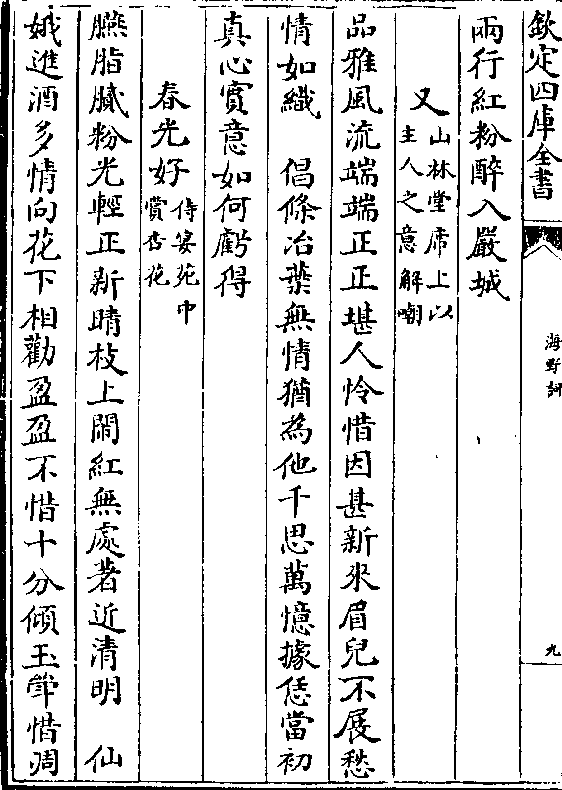 欽定四庫全書
海野詞
九
兩行紅粉醉入嚴城
又山林堂席上以主人之意解嘲
品雅風流端端正正堪人怜惜因甚新來眉兒不展愁
情如織　倡條冶葉無情猶為他千思萬憶據恁當初
真心實意如何虧得
春光好侍宴苑中賞杏花
臙脂膩粉光輕正新晴枝上閙紅無處著近清明　仙
娥進酒多情向花下相勸盈盈不惜十分傾玉斝惜凋